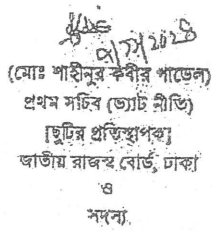 (মোঃ শাহীনুর কবীর পাভেল)
প্রথম সচিব (ভ্যাট নীতি)
[ছুটির প্রতিস্থাপক]
জাতীয় রাজস্ব বোর্ড, ঢাকা
ও
সদস্য